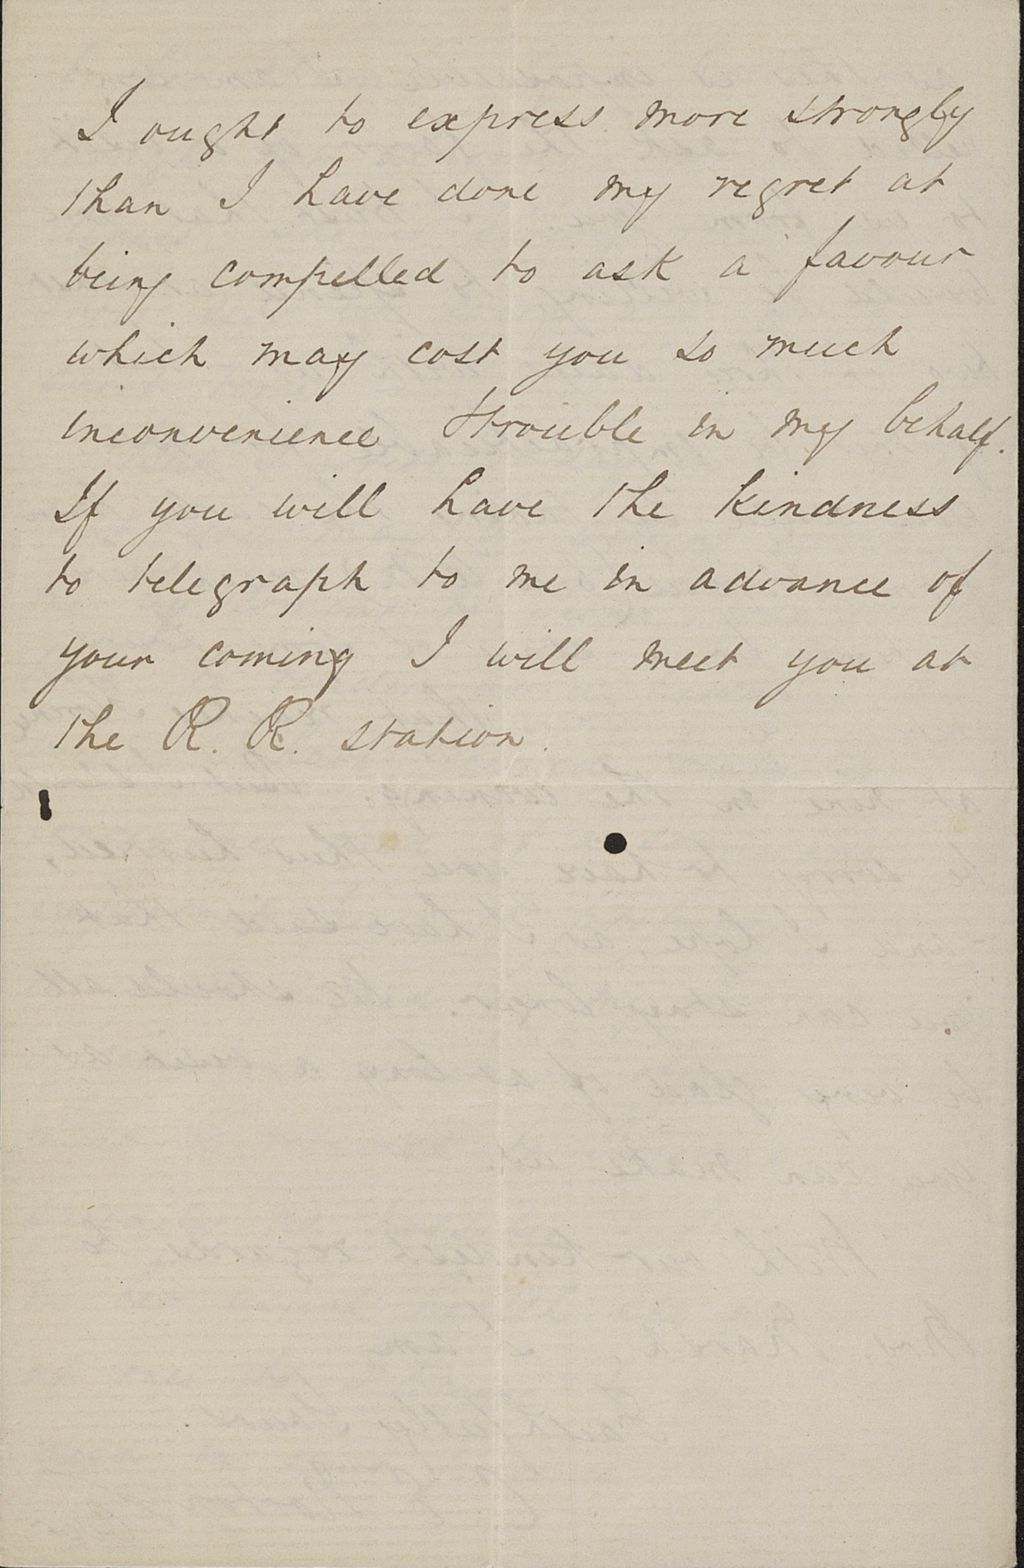 I ought to express more strongly
than I have done my regret at
being compelled to ask a favour
which may cost you so much
inconvenience & trouble in my behalf.
If you will have the kindness
to telegraph to me in advance of
your coming I will meet you at
the R. R. station.